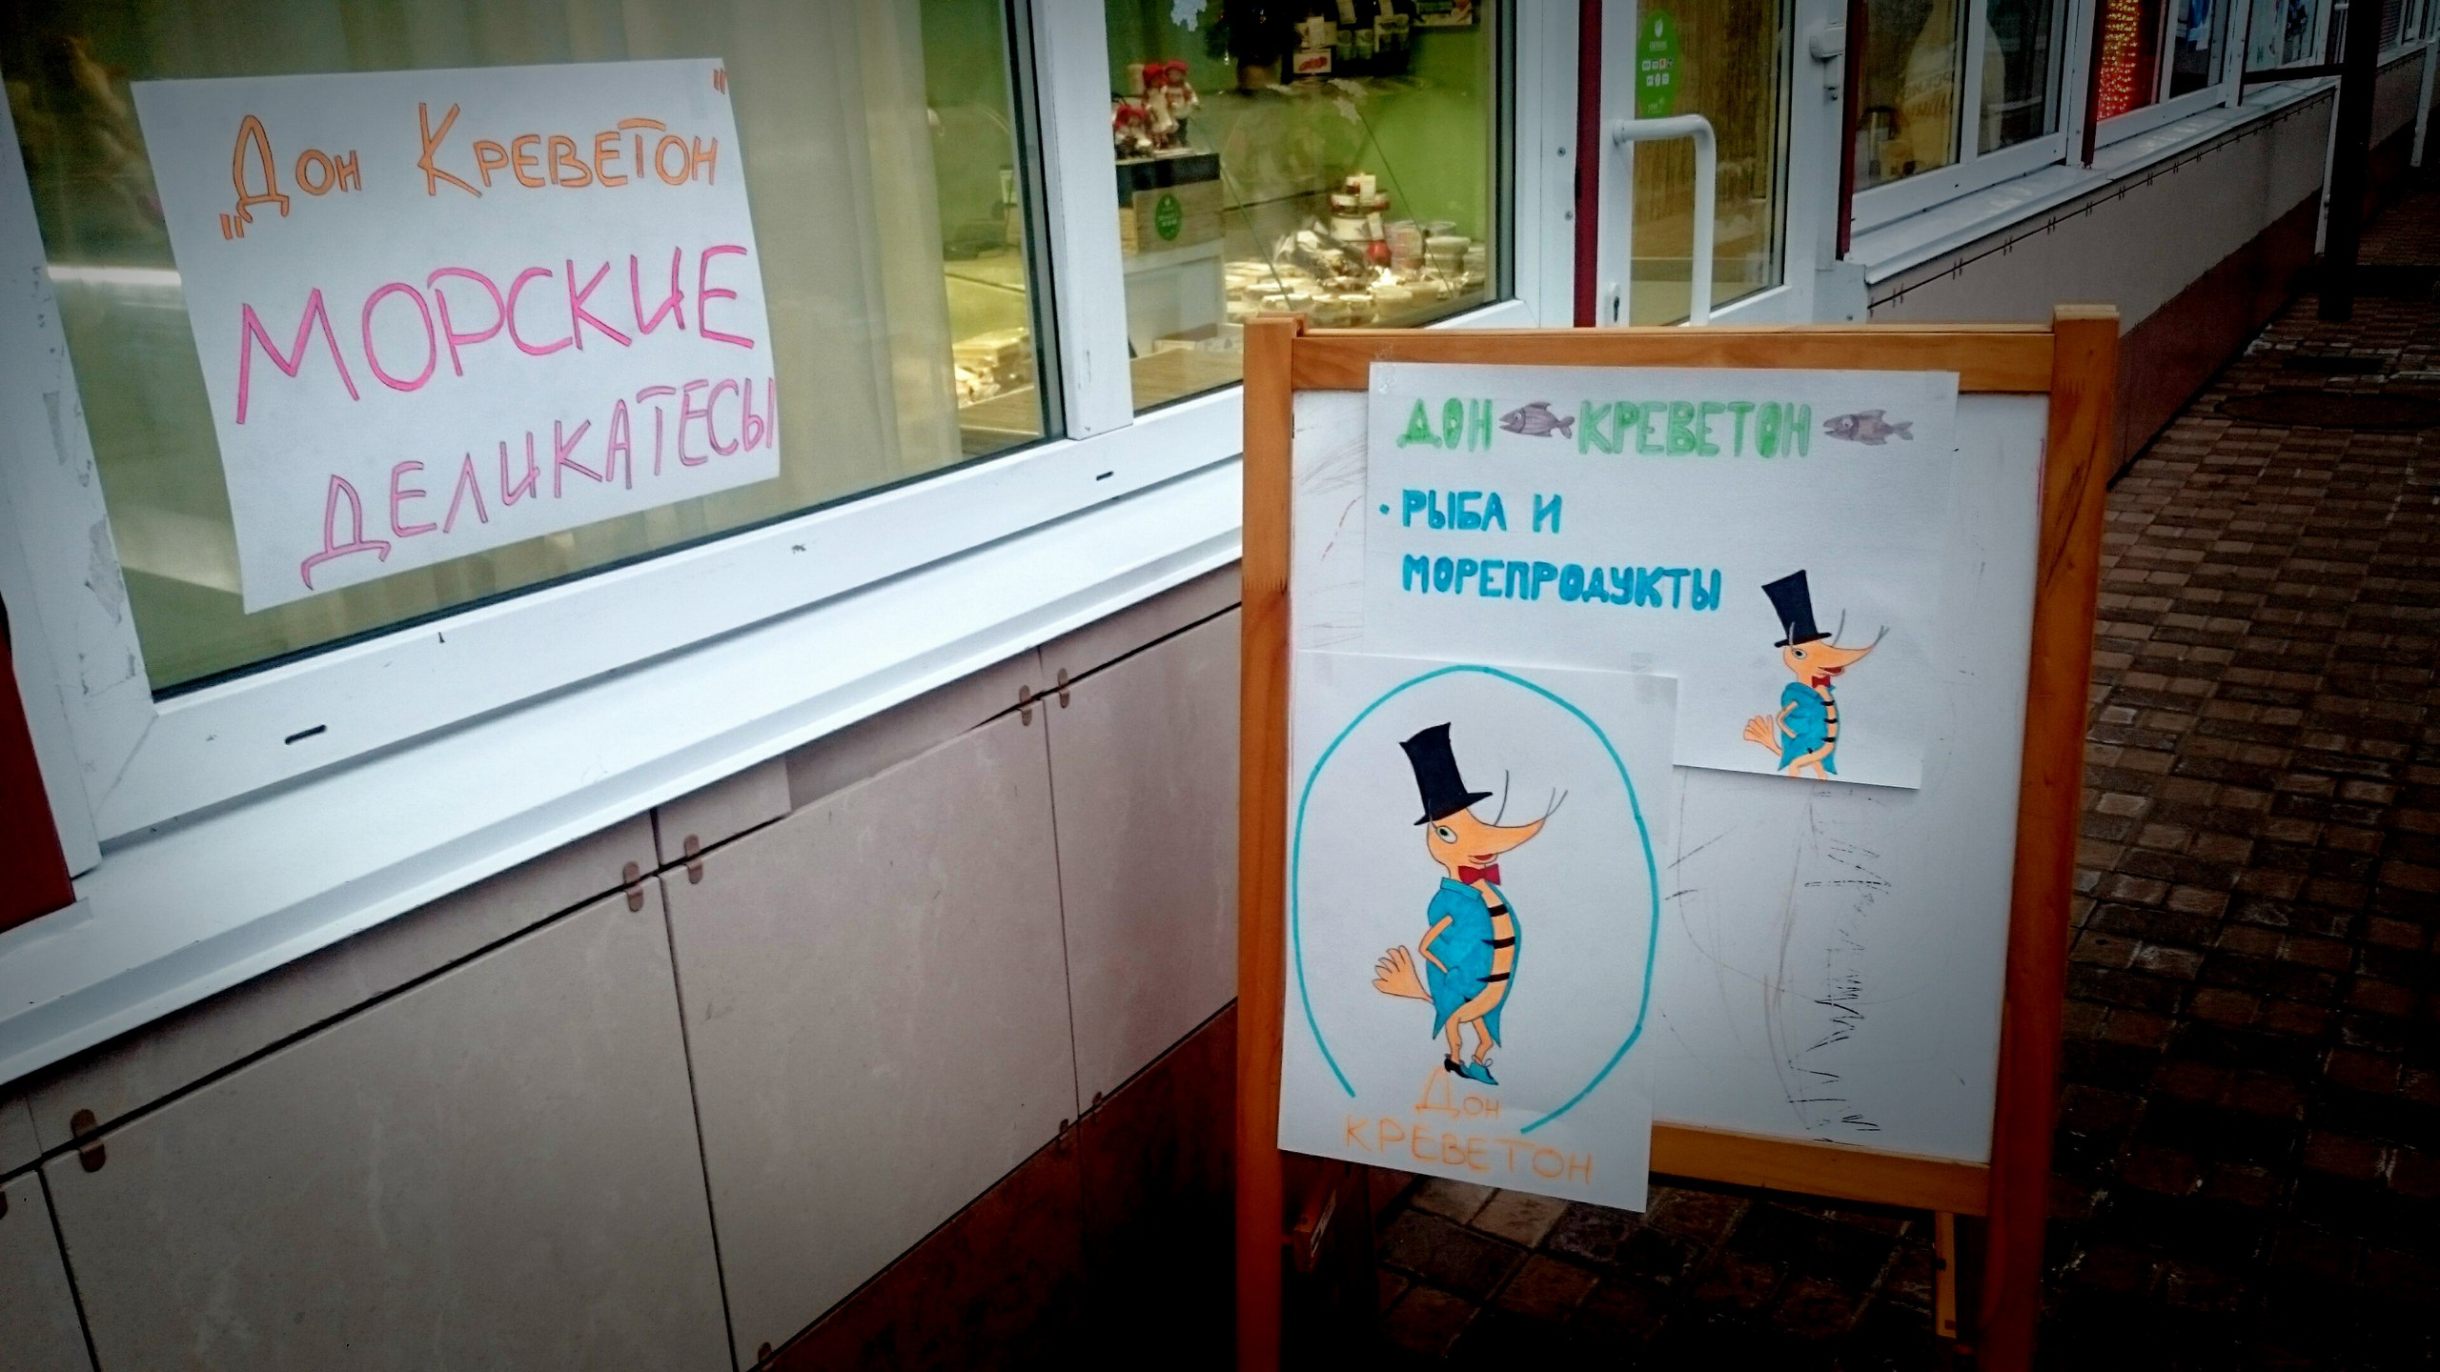 "Дон Креветон"
МОРСКИЕ
ДЕЛИКАТЕСЫ
ДОН КРЕВЕТОН
• РЫБА И
МОРЕПРОДУКТЫ
Дон
КРЕВЕТОН